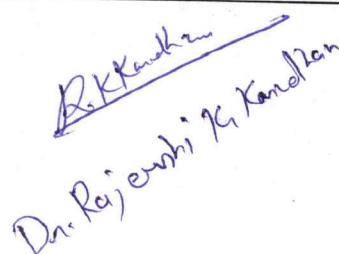 R.K Kandhan
Dr. Rajewshi K. Kandhan